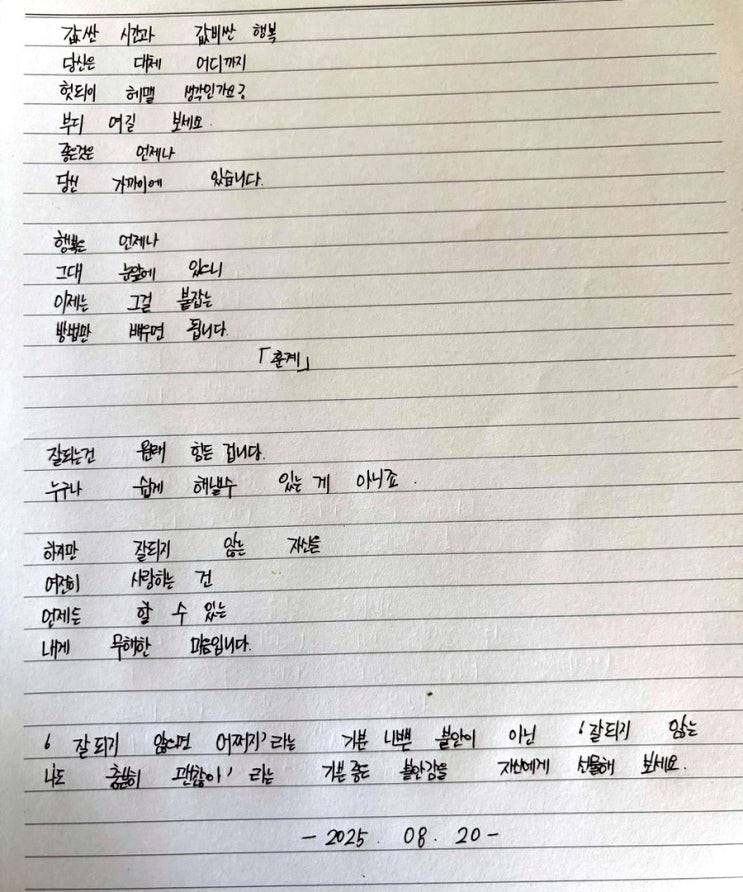 값싼 시간과 값비싼 행복
당신은 대체 어디까지
헛되이 헤맬 생각인가요?
부디 여길 보세요.
좋은것은 언제나
당신 가까이에 있습니다.
행복은 언제나
그대 눈앞에 있으니
이제는 그걸 붙잡는
방법만 배우면 됩니다.
「훈계」
잘되는건 원래 힘든 겁니다.
누구나 쉽게 해낼수 있는 게 아니죠.
하지만 잘되지 않는 자신을
여전히 사랑하는 건
언제든 할 수 있는
내게 무해한 마음입니다.
'잘되지 않으면 어쩌지'라는 기분 나쁜 불안이 아닌 '잘되지 않는
나도 충분히 괜찮아' 라는 기분좋은 불안감을 자신에게 선물해 보세요.
- 2025. 08. 20 -